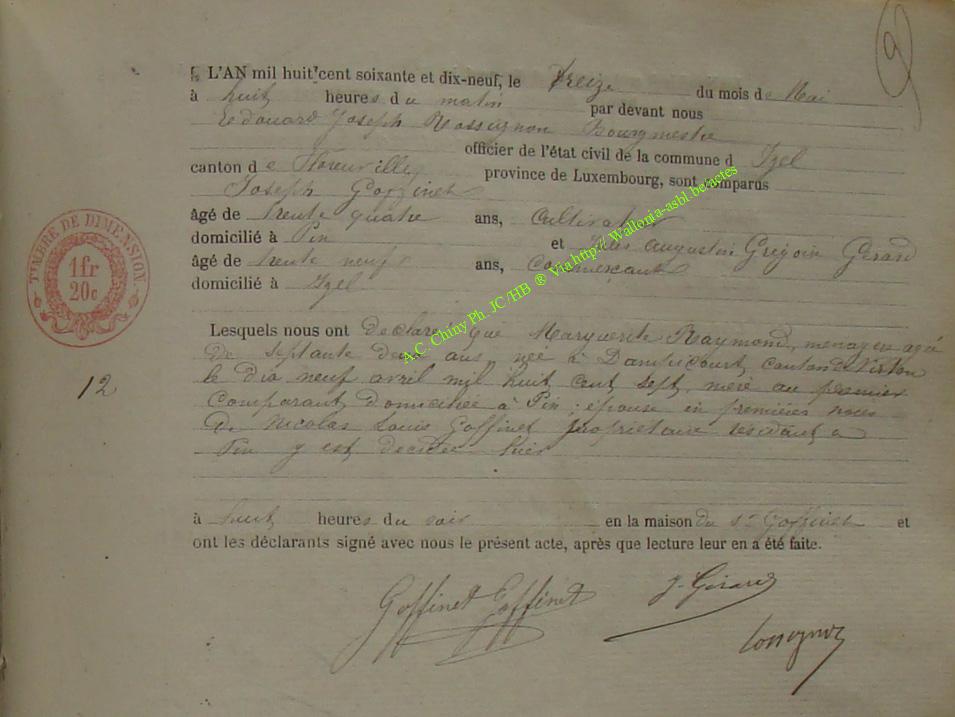 9
L'AN mil huit cent soixante et dix-neuf, le treize du mois de Mai
à huit heures du matin par devant nous
Edouard Joseph Rossignon Bourgmestre
officier de l'état civil de la commune d Izel
canton de Florenville province de Luxembourg, sont comparus
Joseph Goffinet
âgé de trente quatre ans, Cultivateur
domicilié à Pin et Jules Augustin Grégoire Gérard
âgé de trente neuf ans, Commerçant
domicilié à Izel
Lesquels nous ont déclaré que Marguerite Raymond, ménagère agée
de septante deux ans née à Dampicourt, canton de Virton
le dix neuf avril mil huit cent sept, mère au premier
comparant domiciliée à Pin ; épouse en premières noces
de Nicolas Louis Goffinet propriétaire résidant à
Pin y est décédée hier
à huit heures du soir en la maison du Sr Goffinet et
ont les déclarants signé avec nous le présent acte, après que lecture leur en a été faite.
Goffinet Goffinet J. Gérard
Rossignon
TIMBRE DE DIMENSION
1 fr
20c
12
A.C. Chiny Ph. JC/HB ® Via http:// Wallonia-asbl.be/actes